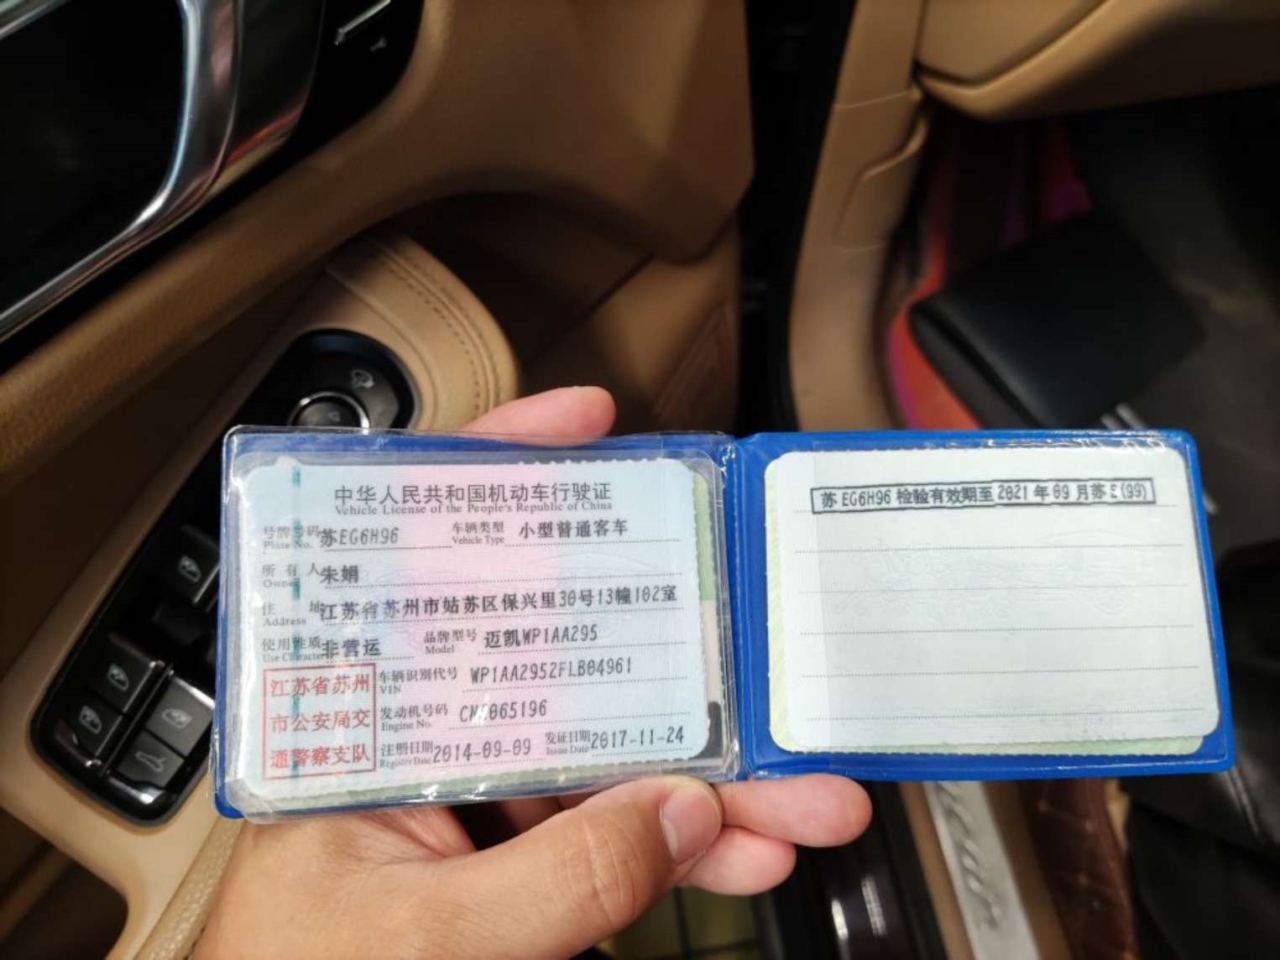 中华人民共和国机动车行驶证
Vehicle License of the People's Republic of China
号牌号码 苏EG6H96 车辆类型 小型普通客车
Plate No. Vehicle Type
所有人 朱娟
Owner
住址 江苏省苏州市姑苏区保兴里30号13幢102室
Address
使用性质 非营运 品牌型号 迈凯WP1AA295
Use Character Model
江苏省苏州 车辆识别代号 WP1AA2952FLB04961
VIN
市公安局交 发动机号码 065196
Engine No.
通警察支队 注册日期 2014-09-09 发证日期 2017-11-24
Register Date Issue Date
苏EG6H96 检验有效期至 2021年09月苏E(99)